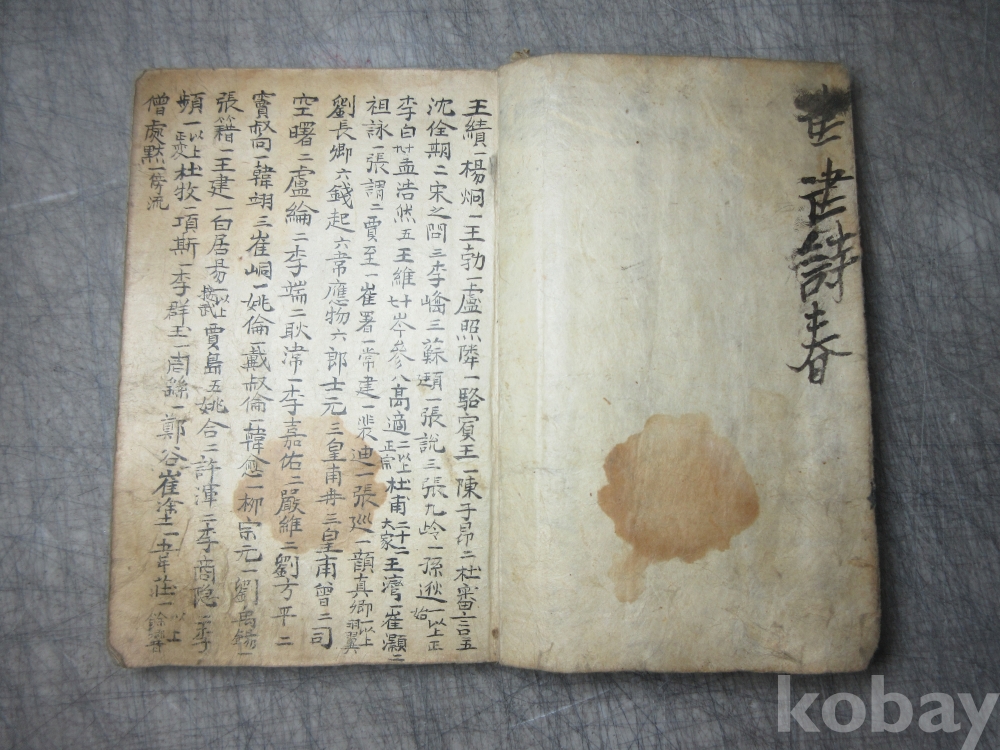 詩春
王績一楊炯一王勃一盧照隣一駱賓王一陳子昂二杜審言五
沈佺期二宋之問三李嶠三蘇頲一張說三張九岭一孫逖一以上正始
李白卅孟浩然五王維十七岑參八高適二以上正宗杜甫二十二大家王灣一崔顥二
祖詠一張謂二賈至一崔署一常建一裴迪一張巡一顔真卿一以上羽翼
劉長卿六錢起六韋應物六郎士元三皇甫冉三皇甫曾二司
空曙二盧綸二李端二耿湋一李嘉佑二嚴維二劉方平二
竇叔向一韓翃三崔峒一姚倫一戴叔倫一韓愈一柳宗元一劉禹錫一
張籍一王建一白居易一以上接武賈島五姚合二許渾二李商隱二李
頻一以上正変杜牧一項斯一李群玉一周繇一鄭谷崔塗一韋莊一以上餘響
僧處默一傍流
kobay